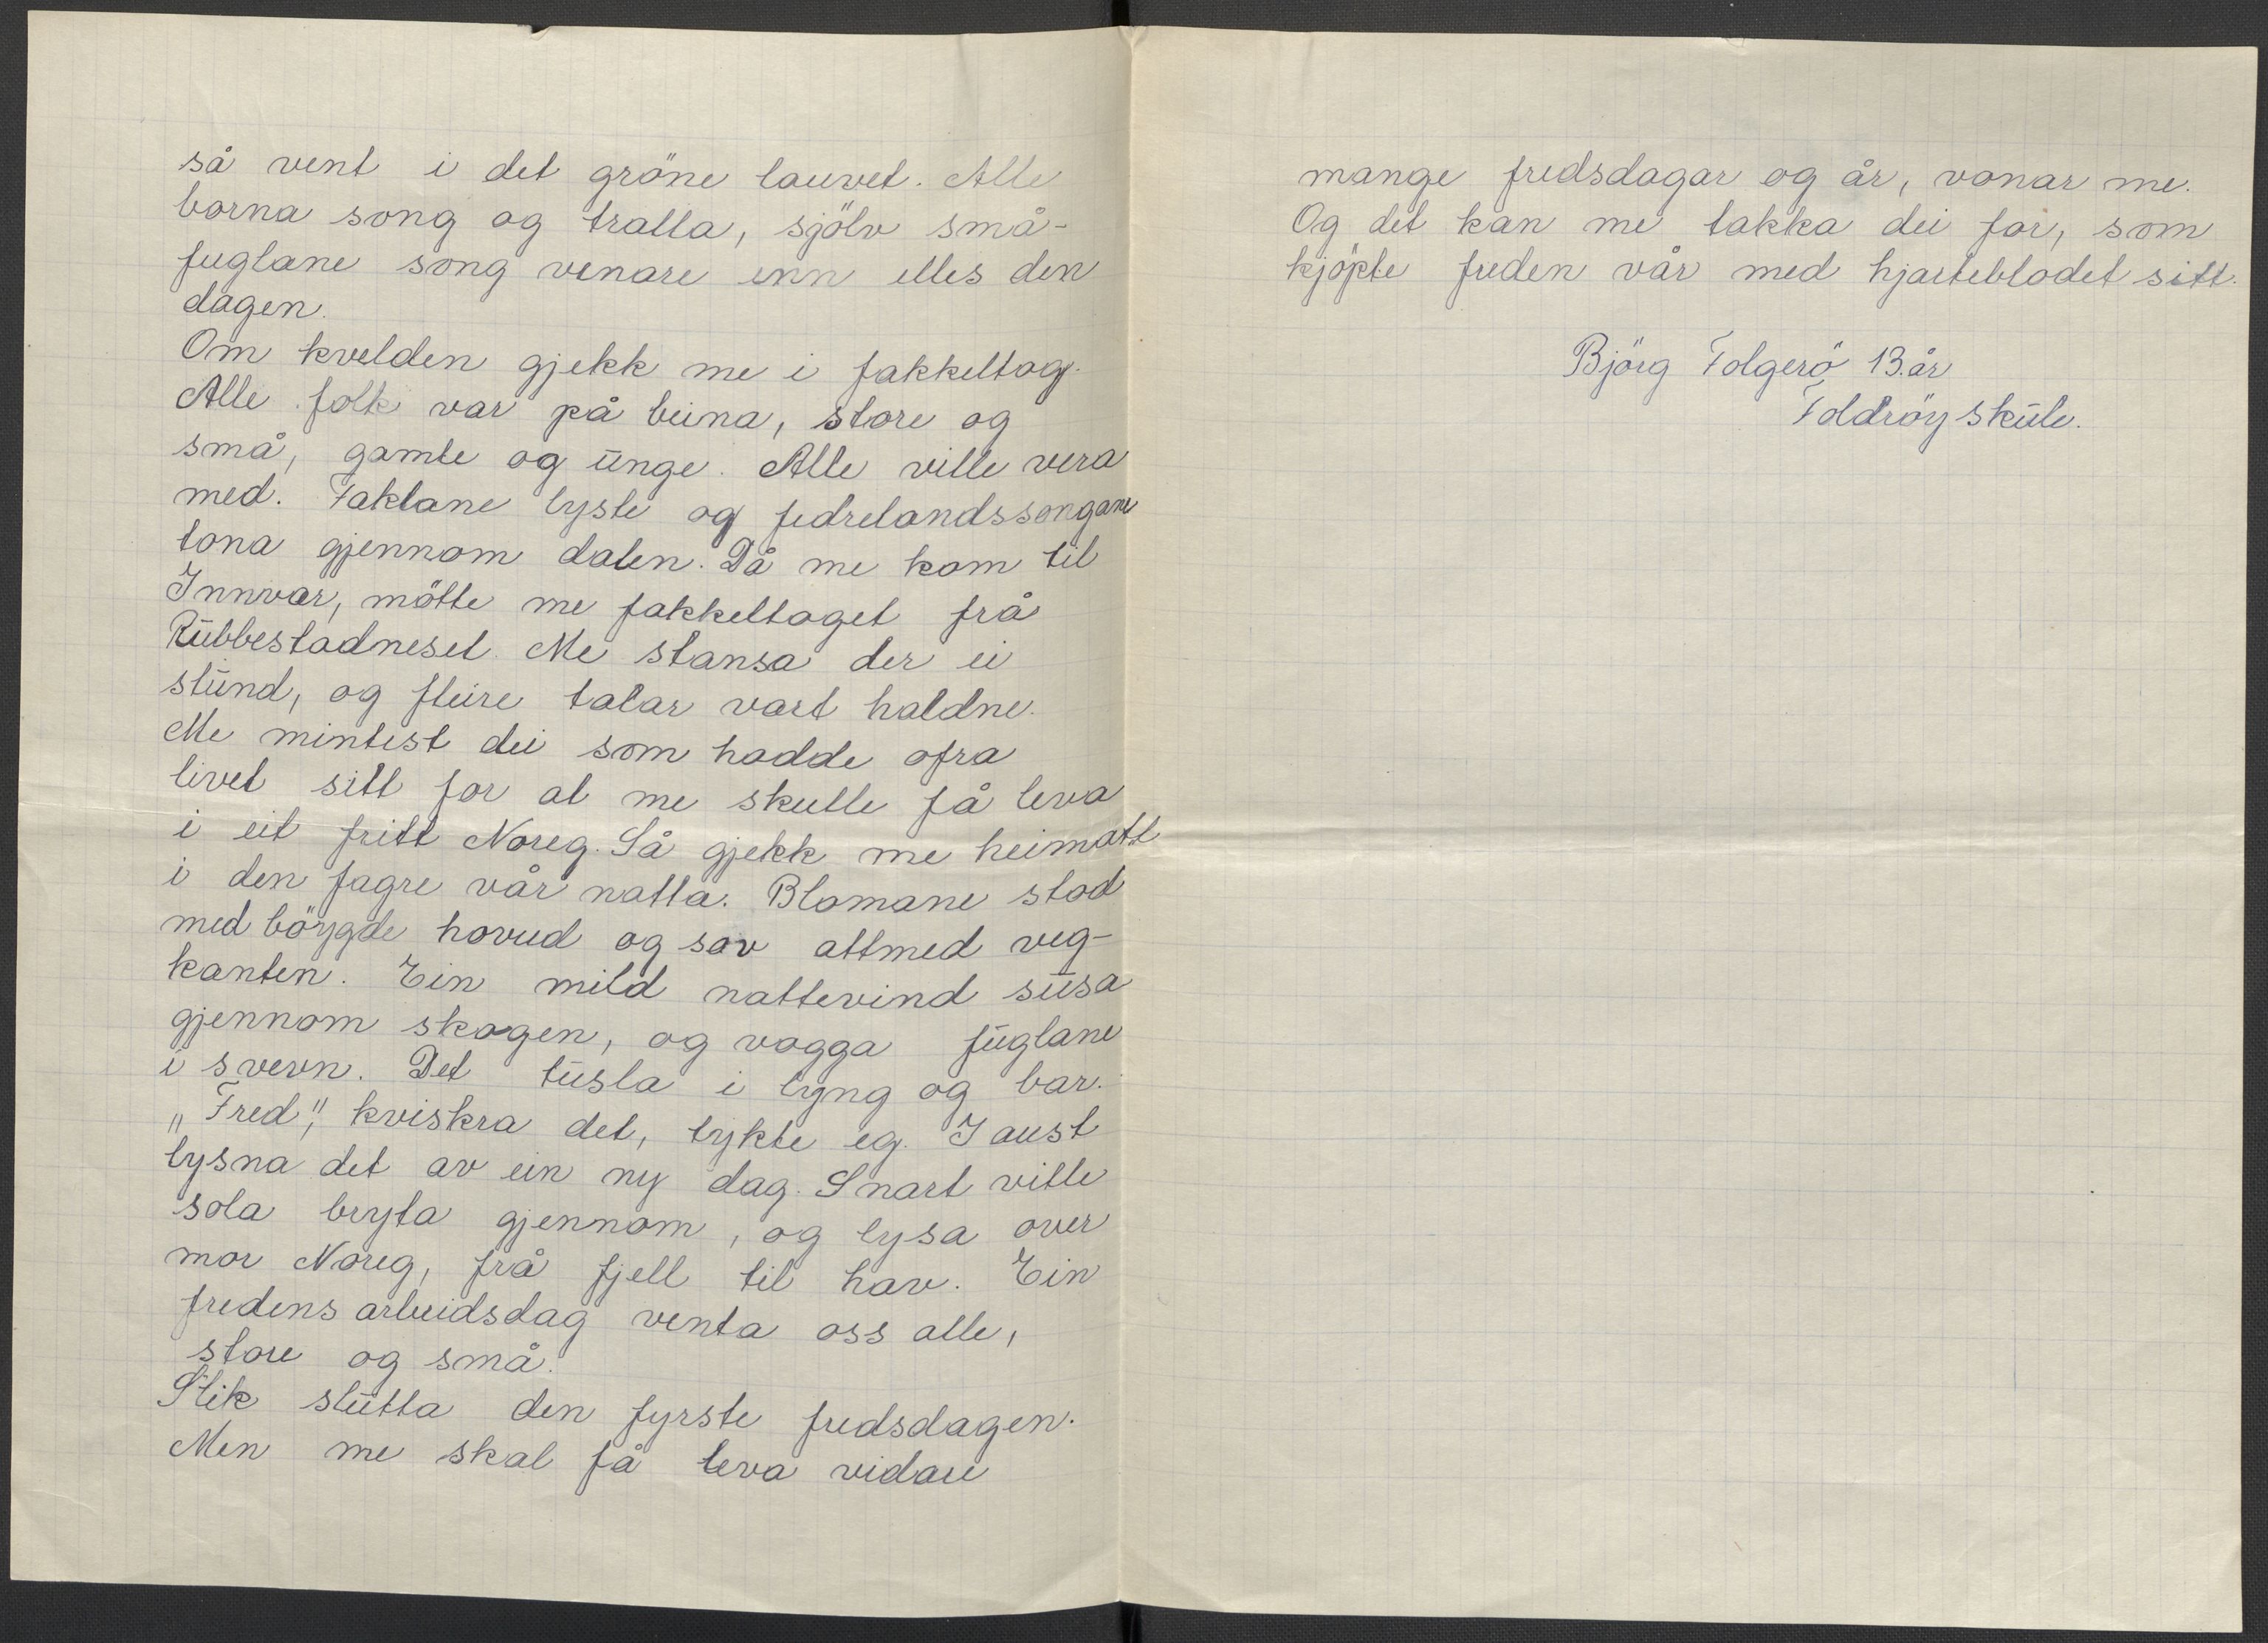 så vent i det gröne lauvet. Alle
borna song og tralla, sjölv små-
fuglane song venare enn elles den
dagen.
Om kvelden gjekk me i fakkeltog.
Alle folk var på beina, store og
små, gamle og unge. Alle ville vera
med. Faklane lyste og fedrelandssongane
tona gjennom dalen. Då me kom til
Innvær, mötte me fakkeltoget frå
Rubbestadneset. Me stansa der ei
stund, og fleire talar vart haldne.
Me mintest dei som hadde ofra
livet sitt for at me skulle få leva
i eit fritt Noreg. Så gjekk me heimatt
i den fagre vår natta. Blomane stod
med böygde hovud og sov attmed veg-
kanten. Ein mild nattevind susa
gjennom skogen, og vogga fuglane
i svevn. Det tusla i lyng og bar.
„Fred", kviskra det, tykte eg. I aust
lysna det av ein ny dag. Snart ville
sola bryta gjennom, og lysa over
mor Noreg, frå fjell til hav. Ein
fredens arbeidsdag venta oss alle,
store og små.
Slik slutta den fyrste fredsdagen.
Men me skal få leva vidare
mange fredsdagar og år, vonar me.
Og det kan me takka dei for, som
kjöpte freden vår med hjarteblodet sitt.
Björg Folgerö 13.år
Foldröy skule.